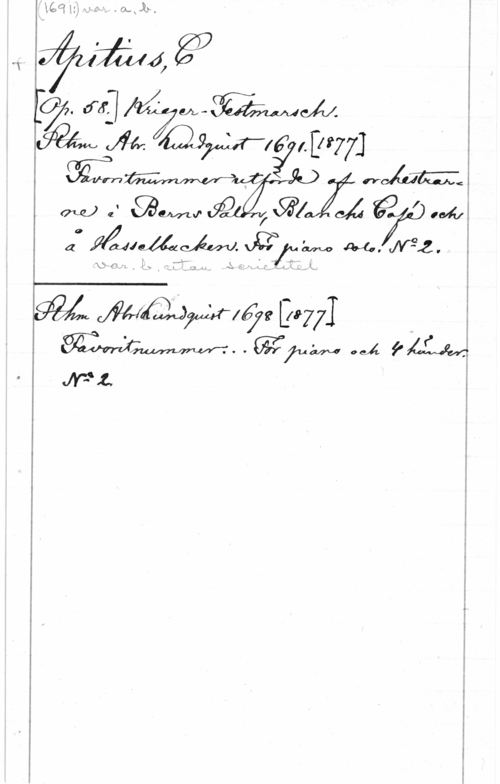 (1691:) var. a, b.
Apitius, C
[Op. 58.] Krieger-Festmarsch.
Sthm Abr. Lundquist 1691. [1877]
Favoritnummer utförde af orchestrar=
ne i Berns Salon, Blanchs Café och
å Hasselbacken. För piano solo. Nº 2.
var. b. utan serietitel
Sthm Abr Lundquist 1698 [1877]
Favoritnummer . . För piano och 4 händer.
Nº 2.